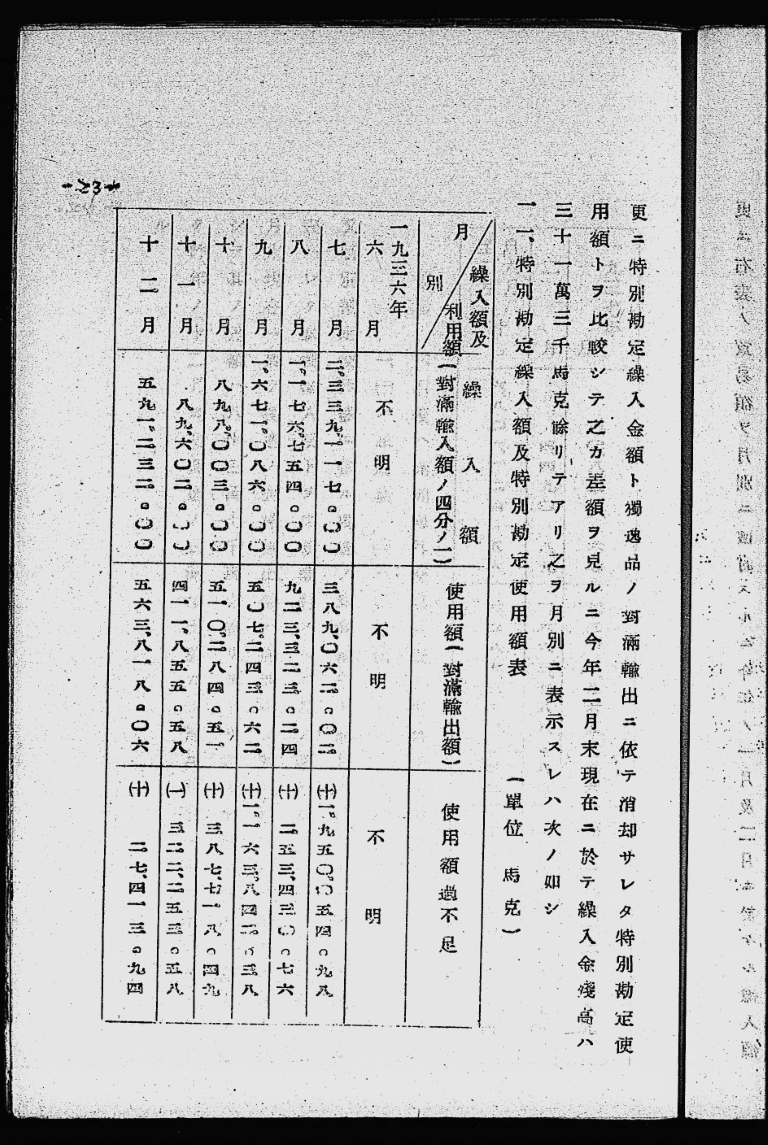 更ニ特別勘定繰入金額ト獨逸品ノ對滿輸出ニ依テ消却サレタ特別勘定使
用額トヲ比較シテ之カ差額ヲ見ルニ今年二月末現在ニ於テ繰入金殘高ハ
三十一萬三千馬克餘リテアリ之ヲ月別ニ表示スレハ次ノ如シ
一一、特別勘定繰入額及特別勘定使用額表 (單位 馬克)
繰入額及利用額 月別 繰入額(對滿輸入額ノ四分ノ一) 使用額(對滿輸出額) 使用額過不足
一九三六年
六月 不明 不明 不明
七月 二、三三九、一一七。〇〇 三八九、〇六二。〇二 (十)一、九五〇、〇五四。九八
八月 一、一七六、七五四。〇〇 九二三、三二三。二四 (十)二五三、四三〇。七六
九月 一、六七一、〇八六。〇〇 五〇七、二四三。六二 (十)一、一六三、八四二。三八
十月 八九八、〇〇三。〇〇 五一〇、二八四。五一 (十)三八七、七一八。四九
十一月 八九、六〇二。〇〇 四一一、八五五。五八 (一)三二二、二五三。五八
十二月 五九一、二三二。〇〇 五六三、八一八。〇六 (十)二七、四一三。九四
-23-